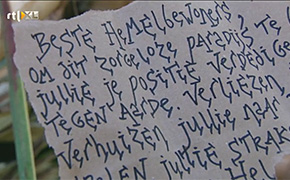 rtl XL
Beste Hemelbewoners,
om dit zorgeloze paradijs, te
jullie je positie verdedige
tegen Aarde. Verliezen
verhuizen jullie naar
jullie straks